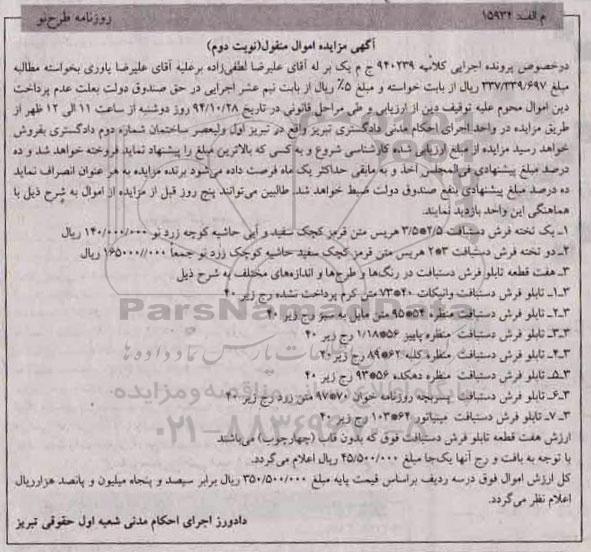 م الف: ۱۵۹۳۲ روزنامه طرح‌نو
آگهی مزایده اموال منقول(نوبت دوم)
درخصوص پرونده اجرایی کلاسه ۹۴۰۲۳۹ ج م یک بر له آقای علیرضا لطفی‌زاده برعلیه آقای علیرضا یاوری بخواسته مطالبه
مبلغ ۳۳۷/۳۳۹/۶۹۷ ریال از بابت خواسته و مبلغ ۵٪ ریال از بابت نیم عشر اجرایی در حق صندوق دولت بعلت عدم پرداخت
دین اموال محوم علیه توقیف دین از ارزیابی و طی مراحل قانونی در تاریخ ۹۴/۱۰/۲۸ روز دوشنبه از ساعت ۱۱ الی ۱۲ ظهر از
طریق مزایده در واحد اجرای احکام مدنی دادگستری تبریز واقع در تبریز اول ولیعصر ساختمان شماره دوم دادگستری بفروش
خواهد رسید مزایده از مبلغ ارزیابی شده کارشناسی شروع و به کسی که بالاترین مبلغ را پیشنهاد نماید فروخته خواهد شد و ده
درصد مبلغ پیشنهادی فی‌المجلس اخذ و به مابقی حداکثر یک ماه فرصت داده می‌شود برنده مزایده به هر عنوان انصراف نماید
ده درصد مبلغ پیشنهادی بنفع صندوق دولت ضبط خواهد شد. طالبین می‌توانند پنج روز قبل از مزایده از اموال به شرح ذیل با
هماهنگی این واحد بازدید نمایند.
۱ـ یک تخته فرش دستبافت ۲/۵*۳/۵ هریس متن قرمز کچک سفید و آبی حاشیه کوچه زرد نو ۱۴۰/۰۰۰/۰۰۰ ریال
۲ـ دو تخته فرش دستبافت ۳*۲ هریس متن قرمز کچک سفید حاشیه کوچک زرد نو جمعاً ۱۶۵۰۰۰//۰۰۰ ریال
۳ـ هفت قطعه تابلو فرش دستبافت در رنگ‌ها و طرح‌ها و اندازه‌های مختلف به شرح ذیل
۳ـ۱ـ تابلو فرش دستبافت وانیکات ۴۰*۷۳ متن کرم پرداخت نشده رج زیر ۴۰
۳ـ۲ـ تابلو فرش دستبافت منظره ۵۴*۹۵ متن مایل به سبز رج زیر ۴۰
۳ـ۳ـ تابلو فرش دستبافت منظره پاییز ۵۶*۱/۱۸ رج زیر ۴۰
۳ـ۴ـ تابلو فرش دستبافت منظره کلبه ۶۲*۸۹ رج زیر ۴۰
۳ـ۵ـ تابلو فرش دستبافت منظره دهکده ۵۶*۹۳ رج زیر ۴۰
۳ـ۶ـ تابلو فرش دستبافت پسربچه روزنامه خوان ۷۰*۹۷ متن زرد رج زیر ۴۰
۳ـ۷ـ تابلو فرش دستبافت مینیاتور ۶۴*۱۰۳ رج زیر ۴۰
ارزش هفت قطعه تابلو فرش دستبافت فوق که بدون قاب (چهارچوب) می‌باشند
با توجه به بافت و رج آنها یک‌جا مبلغ ۴۵/۵۰۰/۰۰۰ ریال اعلام می‌گردد.
کل ارزش اموال فوق درسه ردیف براساس قیمت پایه مبلغ ۳۵۰/۵۰۰/۰۰۰ ریال برابر سیصد و پنجاه میلیون و پانصد هزارریال
اعلام نظر می‌گردد.
دادورز اجرای احکام مدنی شعبه اول حقوقی تبریز
ParsNamadData
پایگاه اطلاع رسانی مناقصه و مزایده
۰۲۱-۸۸۳۴۹۶۷۰-۸